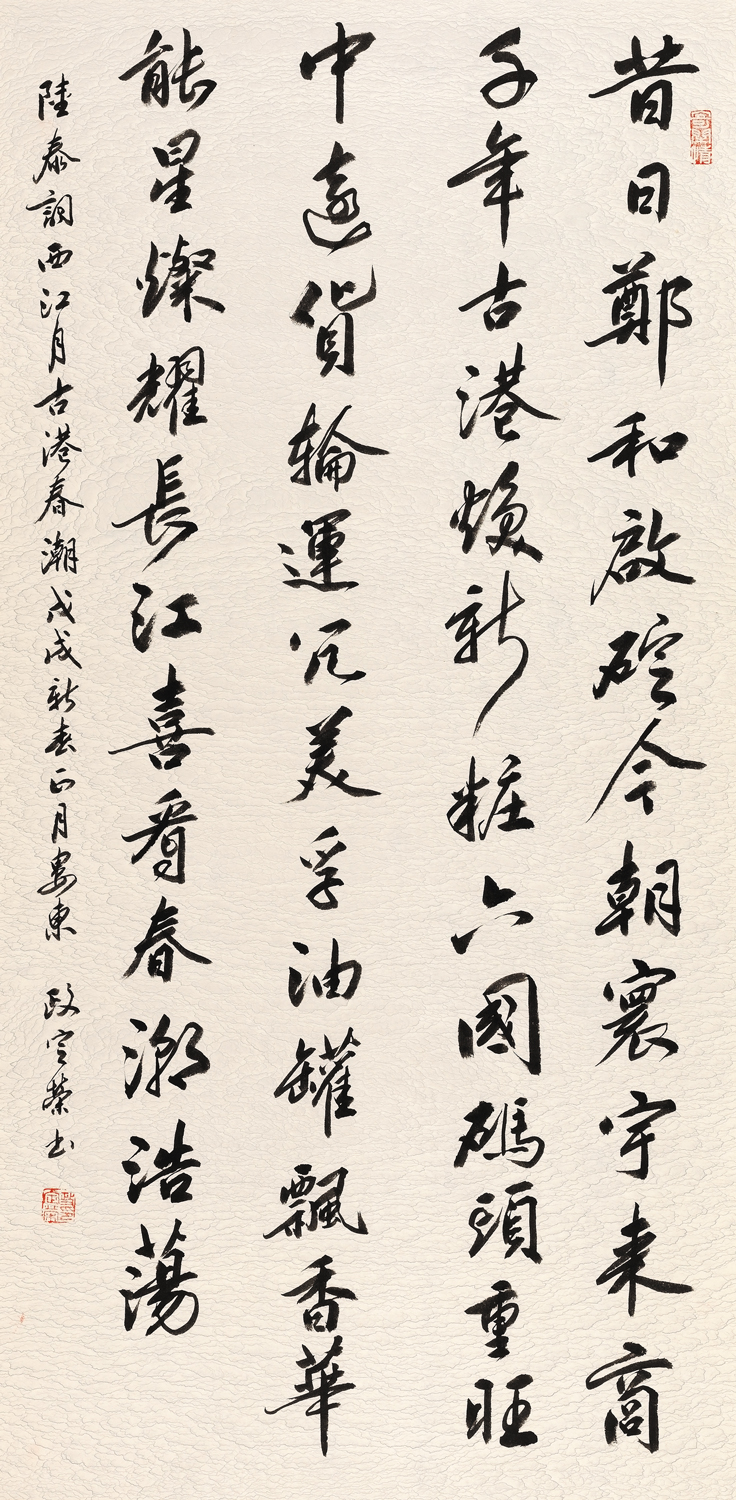 昔日鄭和啟碇今朝寰宇来商
千年古港焕新粧六國碼頭重旺
中遠貨輪運冗美孚油罐飄香華
能星燦耀長江喜看春潮浩蕩
陸泰詞西江月古港春潮戊戌新春正月婁東
政定榮书